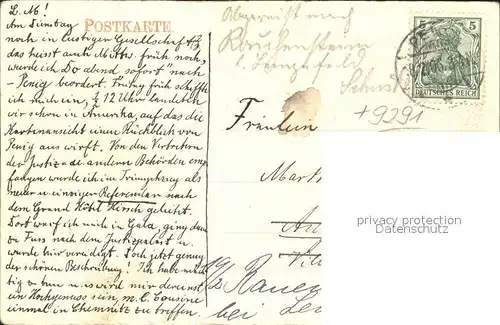 L. M!
POSTKARTE.
Am Dienstag
noch in lustiger Gesellschaft
das heisst auch Mittw. früh noch,
wurde ich Do abend sofort nach
Penig beordert. Freitag früh schiffte
ich mich ein, 1/2 12 Uhr landete
wir schon in Amerika, auf das die
Kartenansicht einen Rückblick von
Penig aus wirft. Von den Vertretern
der Justiz- anderen Behörden emp-
fangen wurde ich im Triumphzug als
neuer u. einziger Referendar nach
dem Grand Hôtel Hirsch geleitet.
Dort warf ich mich in Gala, ging dann
zu Fuss nach dem Justizpalast u.
wurde hier vereidigt. Doch jetzt genug
der schönen Beschreibung! Ich habe
zu tun u. es wird mir dereinst
ein Hochgenuss sein, m. l. Cousine
einmal in Chemnitz zu treffen.
Abgereist nach
Rauenstein
b. Lengefeld
5 5
DEUTSCHES REICH
+9291
Fräulein
Mart
privacy protection
Datenschutz
Rauen
bei Len